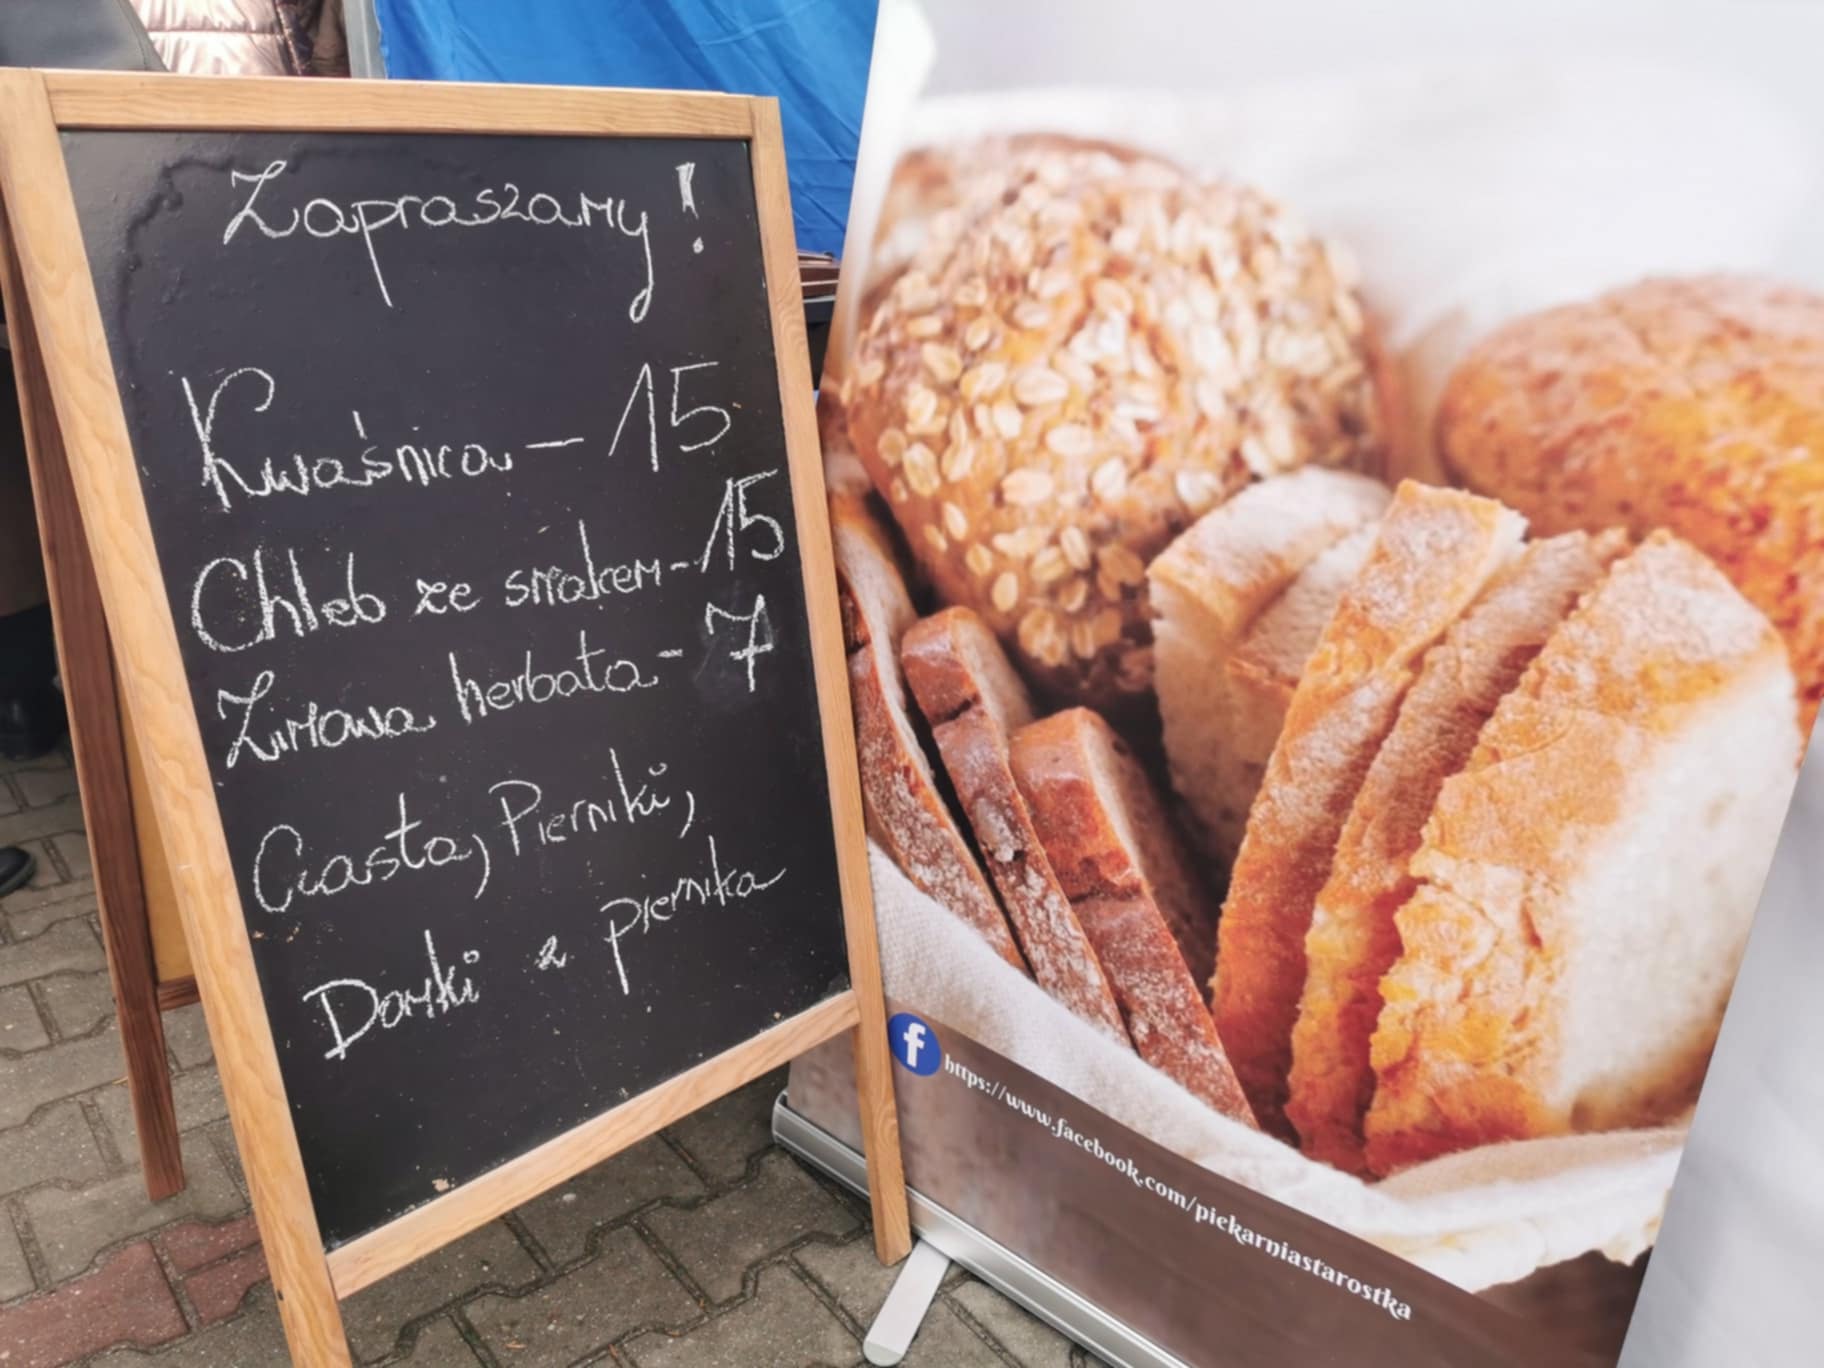 Zapraszamy!
Kwaśnica - 15
Chleb ze smalcem - 15
Zimowa herbata - 7
Ciasta, Pierniki,
Domki z piernika
f https://www.facebook.com/piekarniastarostka